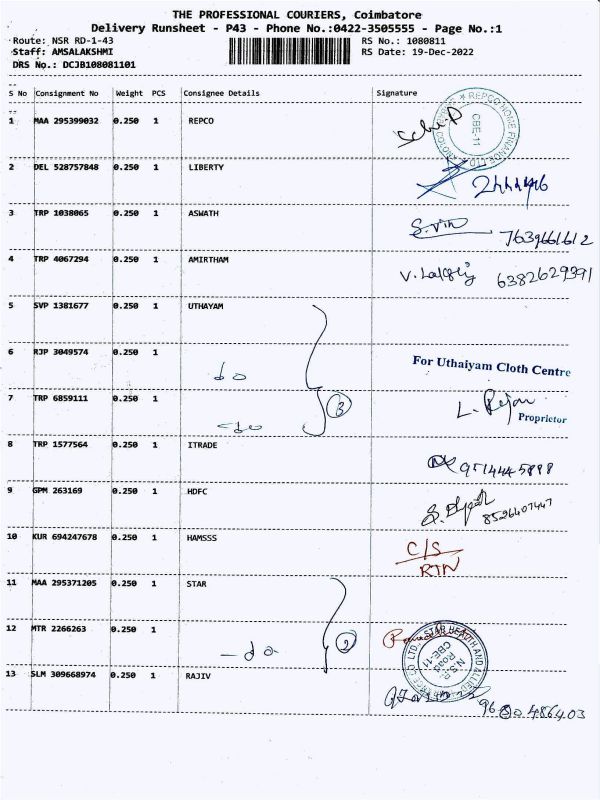 THE PROFESSIONAL COURIERS, Coimbatore
Delivery Runsheet - P43 - Phone No.:0422-3505555 - Page No.:1
Route: NSR RD-1-43
RS No.: 1080811
Staff: AMSALAKSHMI
RS Date: 19-Dec-2022
DRS No.: DCJB108081101
S No Consignment No Weight PCS Consignee Details Signature
1 MAA 295399032 0.250 1 REPCO
REPCO HOME FINANCE LTD
CBE-11
2 DEL 528757848 0.250 1 LIBERTY
3 TRP 1038065 0.250 1 ASWATH
7639661612
4 TRP 4067294 0.250 1 AMIRTHAM
6382629391
5 SVP 1381677 0.250 1 UTHAYAM
6 RJP 3049574 0.250 1 do
For Uthaiyam Cloth Centre
7 TRP 6859111 0.250 1 -do 3
Proprietor
8 TRP 1577564 0.250 1 ITRADE
9 GPM 263169 0.250 1 HDFC
8526407447
10 KUR 694247678 0.250 1 HAMSSS
C/S
RTN
11 MAA 295371205 0.250 1 STAR
12 MTR 2266263 0.250 1 -do- 2
STAR HEALTH AND ALLIED
N.S.R. Road
CBE-11
13 SLM 309668974 0.250 1 RAJIV